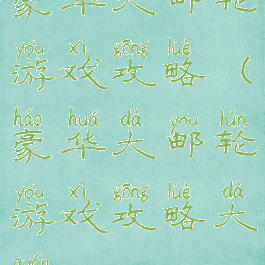 豪华大邮轮
yóu xì gōng luè
游戏攻略（
háo huá dà yóu lún
豪华大邮轮
yóu xì gōng luè dà
游戏攻略大